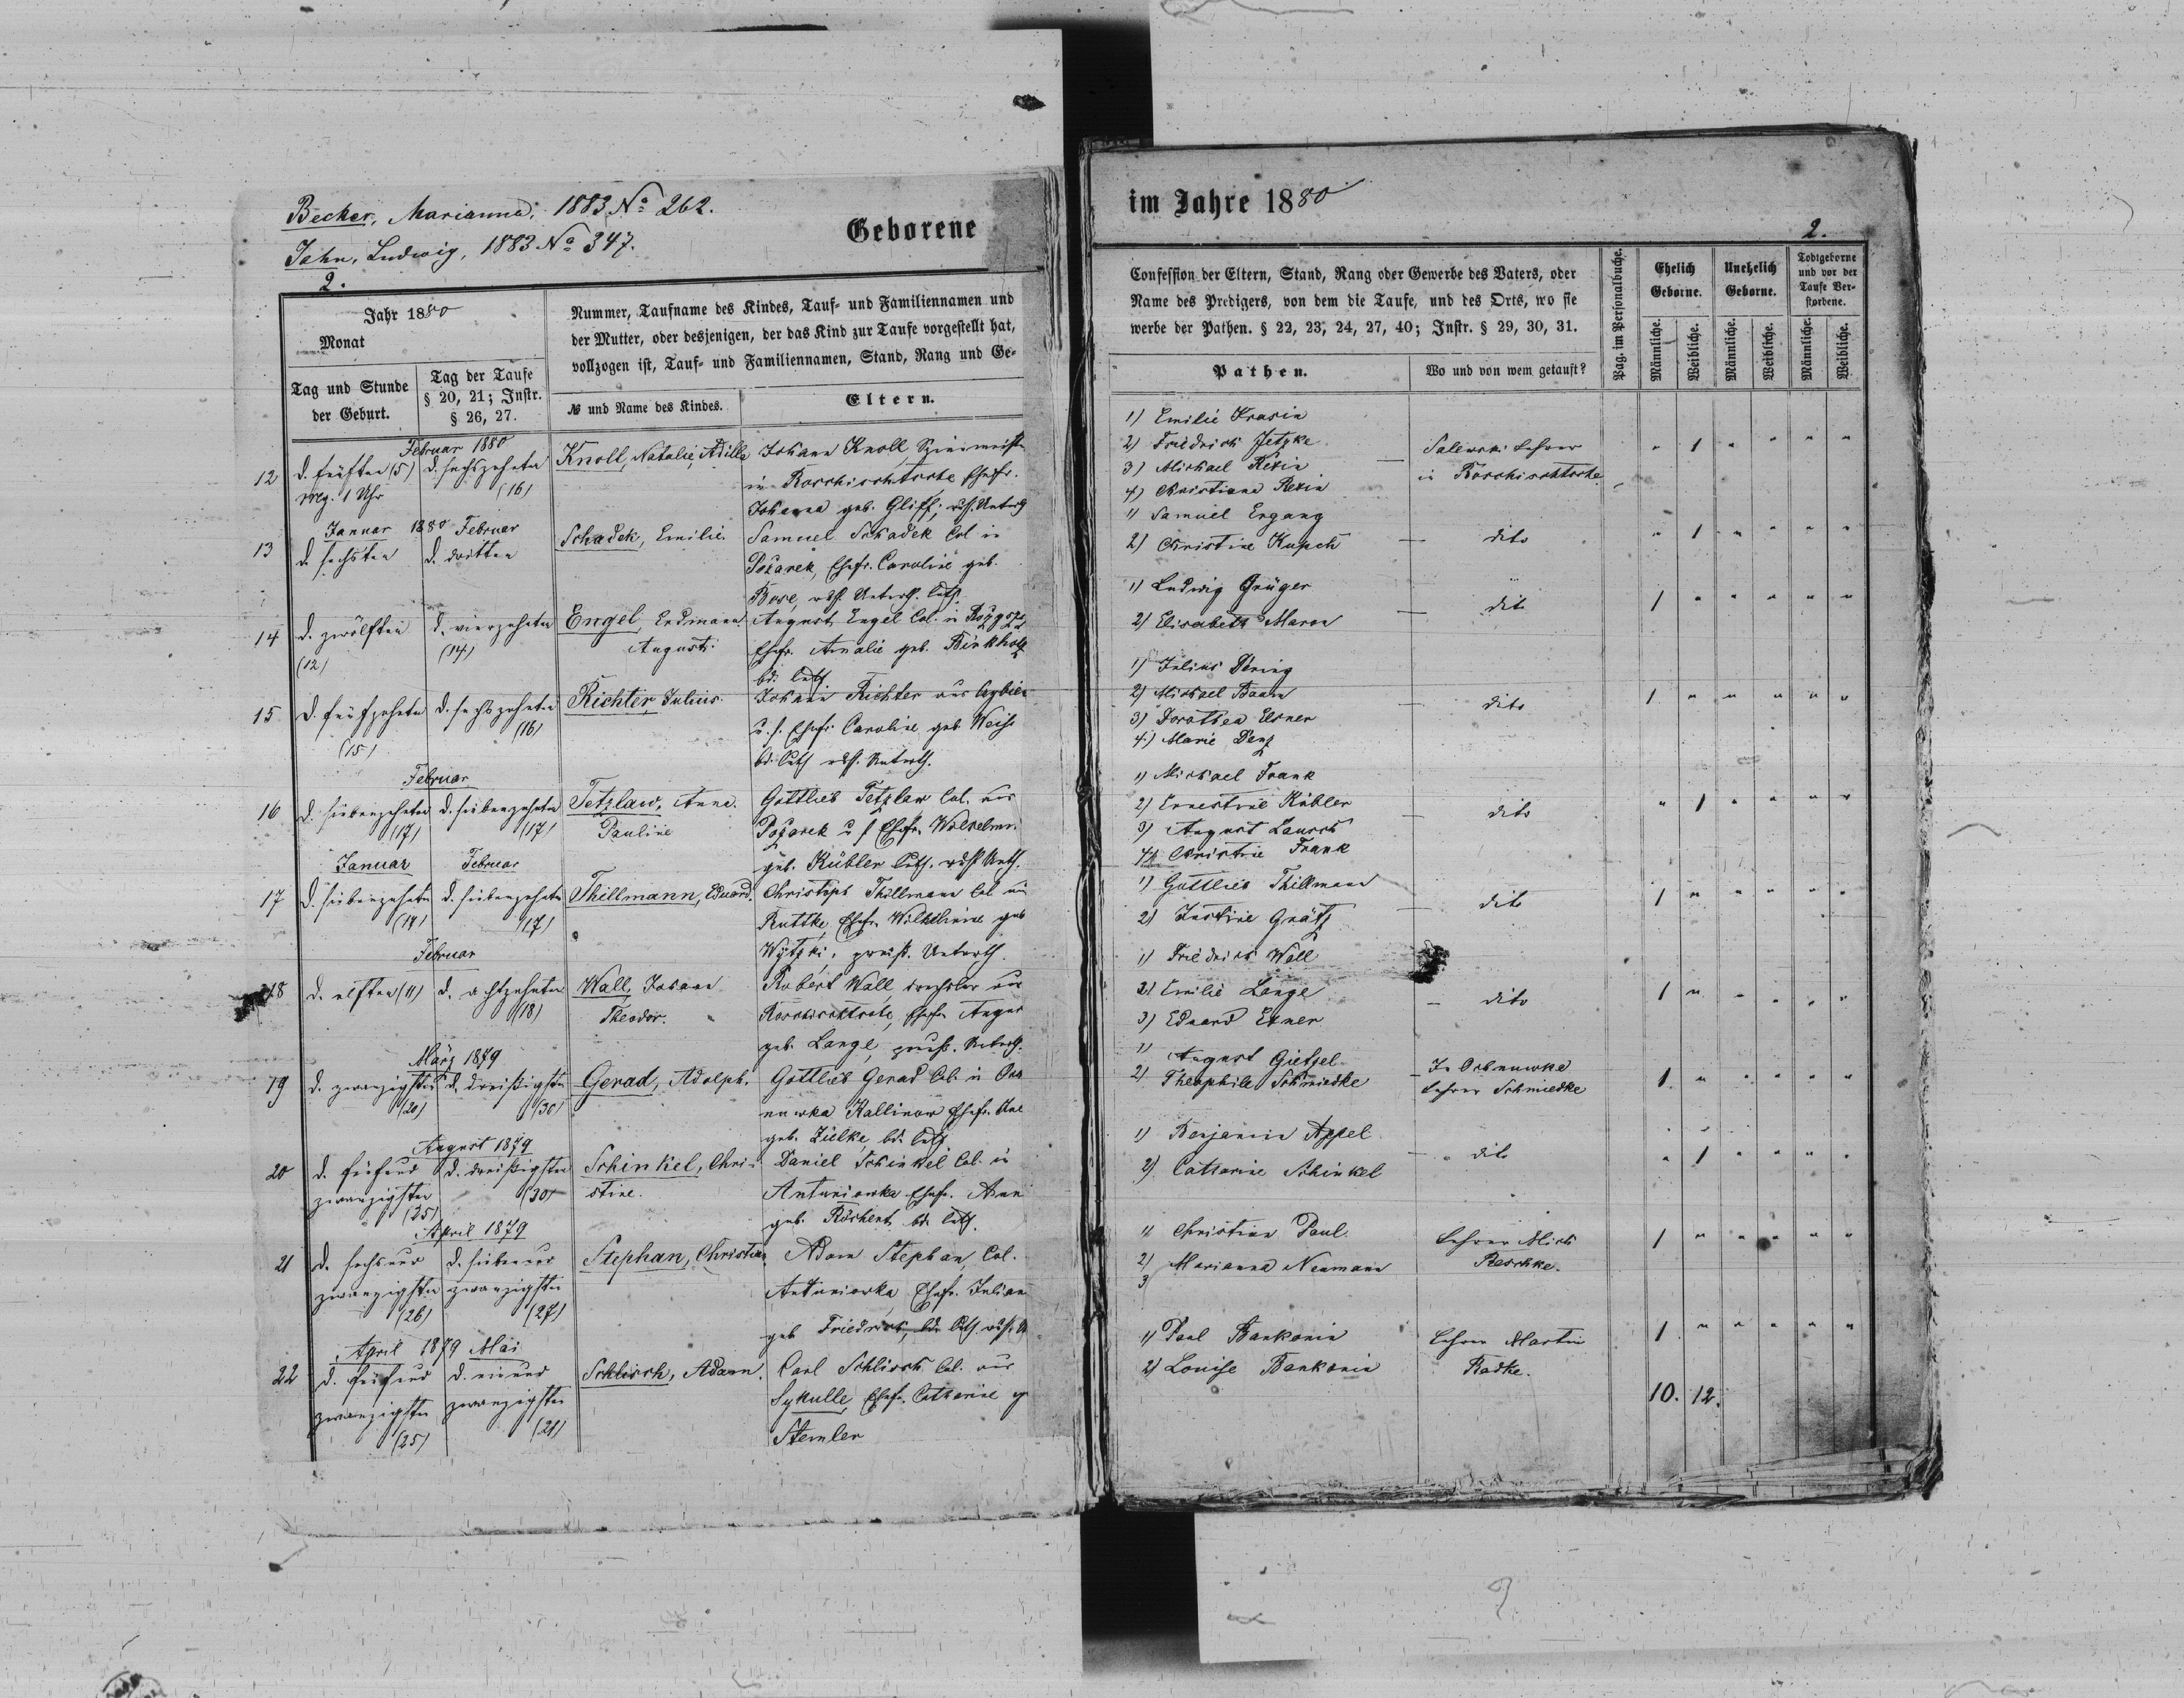 Becker, Marianna, 1883 № 262.
Jahn, Ludwig, 1883 № 347.
Geborene
2.
Jahr 1880
Monat
Tag und Stunde
der Geburt.
Tag der Taufe
§ 20, 21; Instr.
§ 26, 27.
Nummer, Taufname des Kindes, Tauf- und Familiennamen und
der Mutter, oder desjenigen, der das Kind zur Taufe vorgestellt hat,
vollzogen ist, Tauf- und Familiennamen, Stand, Rang und Ge-
№ und Name des Kindes.
Eltern.
Februar 1880
12 d. fünften (5) d. sechszehnten (16)
1 Uhr
Knoll, Natalie, Adilla
Johann Knoll
in Roschischtsche Ehefr.
Johanna geb. Gliff, Unterth
Januar 1880 Februar
13 d. sechsten d. dritten
Schadek, Emilie.
Samuel Schadek Col in
Požarek, Ehefr. Caroline geb.
Bose, Unterth. luth.
14 d. zwölften (12) d. vierzehnten (14)
Engel, Erdmann
August.
August Engel Col. in
Ehefr. Amalie geb. Birkholz
bd. luth.
15 d. fünfzehnten (15) d. sechszehnten (16)
Richter, Julius.
Johann Richter aus
u. s. Ehefr. Caroline geb. Weiß
bd. luth Unterth.
Februar
16 d. siebenzehnten (17) d. siebenzehnten (17)
Tetzlaw, Anna.
Pauline
Gottlieb Tetzlaw Col. aus
Požarek u s Ehefr. Wilhelmi.
geb. Kübler luth. Unth.
Januar Februar
17 d. siebenzehnten (17) d. siebenzehnten (17)
Thillmann, Eduard.
Christoph Thillmann Col aus
Ruttke, Ehefr. Wilhelmine geb
Wytzki, preuß. Unterth.
Februar
18 d. elften (11) d. achtzehnten (18)
Wall, Johann
Theodor.
Robert Wall, aus
Roschischtsche, Ehefr. August
geb. Lange, preuß. Unterth.
März 1879
19 d. zwanzigsten (20) d. dreißigsten (30)
Gerad, Adolph.
Gottlieb Gerad Col. in
Kallinow Ehefr.
geb. Zielke, bd. luth
August 1879
20 d. fünfund d. dreißigsten
zwanzigsten (25) (30)
Schinkel, Chri-
stine.
Daniel Schinkel Col. in
Antuniowka Ehefr. Ann
geb. bd. luth.
April 1879
21 d. sechsund d. siebenund
zwanzigsten zwanzigsten
(26) (27)
Stephan, Christian.
Adam Stephan, Col.
Antuniowka, Ehefr. Julian
geb Friedrich, bd. luth.
April 1879 Mai
22 d. fünfund d. einund
zwanzigsten zwanzigsten
(25) (21)
Schlisch, Adam.
Carl Schlisch Col. aus
Sykulle, Ehefr. Catharine g
Stemler
im Jahre 1880
2.
Confession der Eltern, Stand, Rang oder Gewerbe des Vaters, oder
Name des Predigers, von dem die Taufe, und des Orts, wo sie
werbe der Pathen. § 22, 23, 24, 27, 40; Instr. § 29, 30, 31.
Pathen.
Wo und von wem getauft?
Pag. im Personalbuche.
Ehelich
Geborne.
Unehelich
Geborne.
Todtgeborne
und vor der
Taufe Ver-
storbene.
Männliche. Weibliche. Männliche. Weibliche. Männliche. Weibliche.
1) Emilie Krasin
2) Friedrich Jetzke
3) Michael Rexin
4) Christiana Rexin
Salewski Lehrer
in Roschischtsche
" 1 " " " "
1) Samuel Ergang
2) Christine Kupsch
— dito
" 1 " " " "
1) Ludwig Grüger
2) Elisabeth Maron
— dito
1 " " " " "
1) Julius Döring
2) Michael Baum
3) Dorothea Elsner
4.) Marie Denz
— dito
1 " " " " "
1) Michael Frank
2) Ernestine Kübler
3) August Lausch
4) Christine Frank
— dito
" 1 " " " "
1) Gottlieb Thillmann
2) Justine Grätz
— dito
1 " " " " "
1) Friedrich Wall
2) Emilie Lange
3) Eduard Exner
— dito
1 " " " " "
1) August Gietzel
2) Theophile Schmiedke
Lehrer Schmiedke
1 " " " " "
1) Benjamin Appel
2) Catharine Schinkel
— " dito
" 1 " " " "
1) Christian Paul.
2) Marianna Neumann
3
Lehrer Mich
Reschke.
1 " " " " "
1) Paul Bankonin
2) Louise Bankonin
Lehrer Martin
Radke.
1 " " " " "
10. 12.